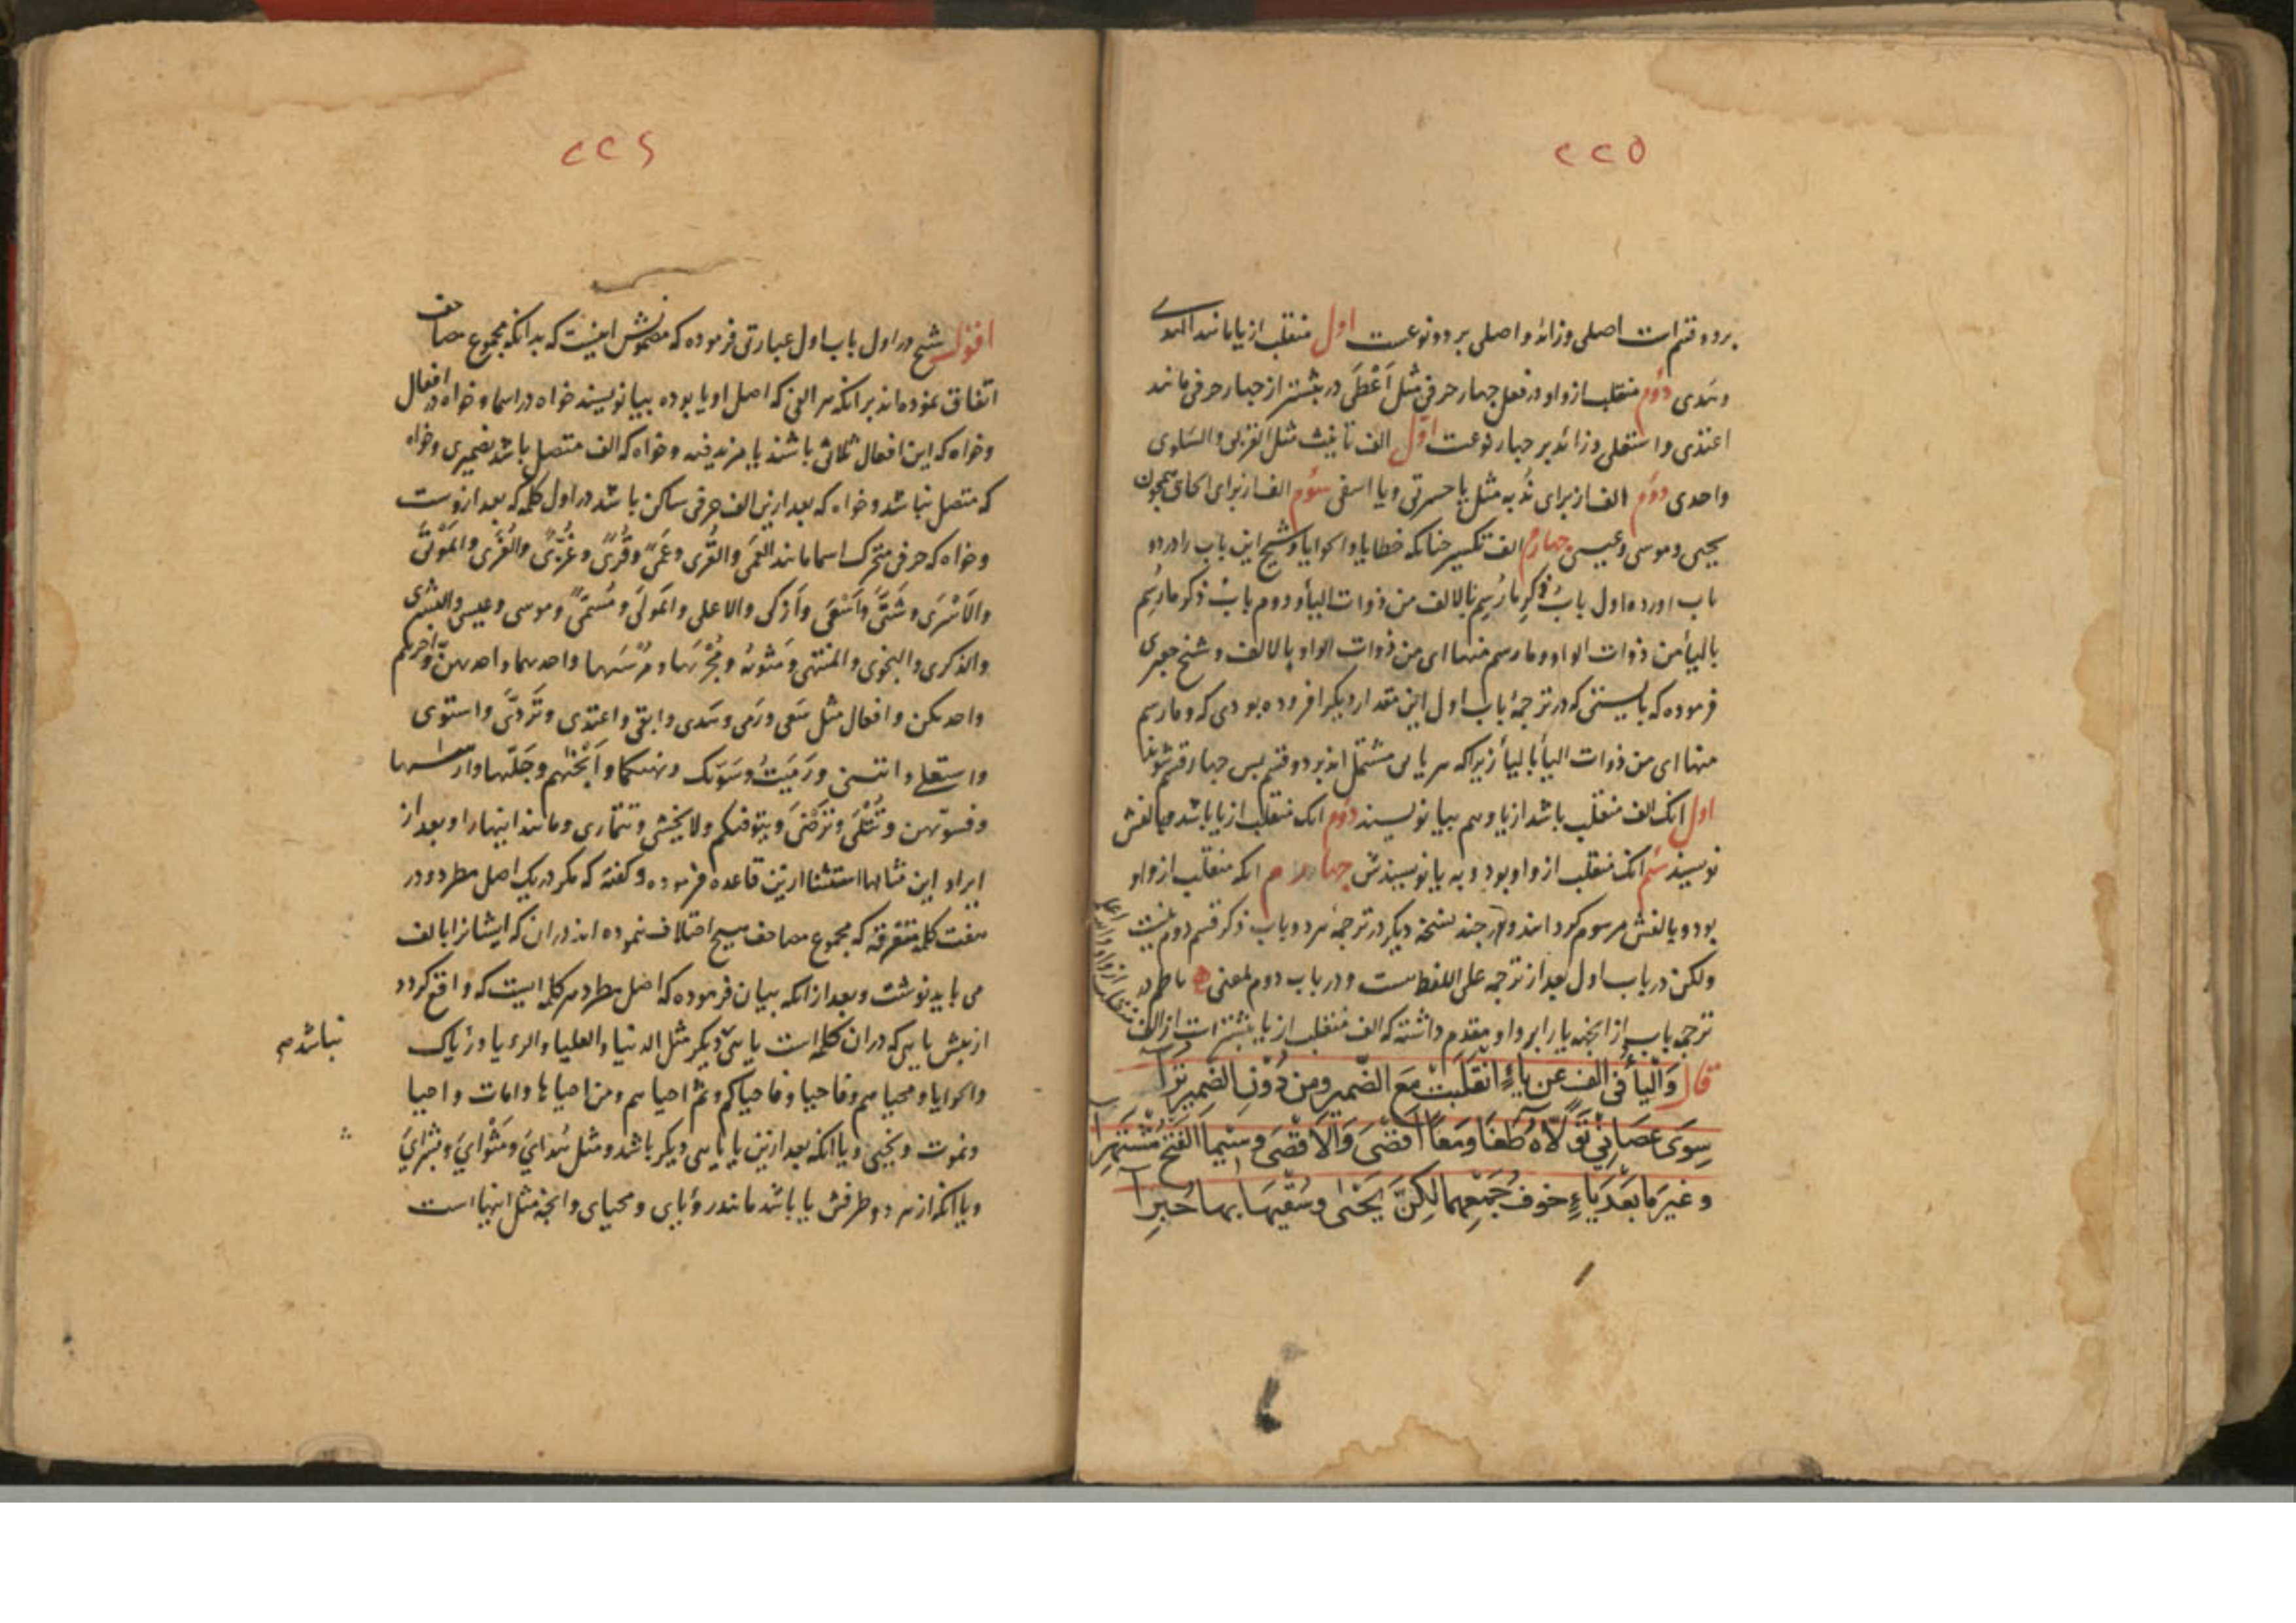 ۲۲۵
بردو قسم است اصلی وزائد واصلی بر دو نوعست اول منقلب از یا مانند الهدی
وهدی دوم منقلب از واو در فعل چهار حرفی مثل اَعْطَی در بیشتر از چهار حرفی مانند
اعتدی و استعلی وزائد بر چهار نوعست اوّل الف تانیث مثل القربی والسلوی
واحدی دوم الف از برای نُدبه مثل یا حسرتی ویا اسفی سوم الف از برای الحاق همچون
یحیی وموسی وعیسی چهارم الف تکسیر چنانکه خطایا والحوایا وشیخ این باب را در دو
باب اورده اول بابُ ذکرِ ما رُسِم بالالف من ذوات الیأ ودوم بابُ ذکر ما رُسِم
بالیأ من ذوات الواو وما رسم منها ای من ذوات الواو بالالف وشیخ جعبری
فرموده که بایستی که در ترجمهٔ باب اول این مقدار دیکر افزوده بودی که وما رسم
منها ای من ذوات الیأ بالیأ زیراکه هر بابی مشتمل اند بر دو قسم پس چهار قسم شوند
اول انک الف منقلب باشد از یا وهم بیا نویسند دوم انک منقلب از یا باشد وبالفش
نویسند سیم انک منقلب از واو بود وبه یا نویسندش چهارم انکه منقلب از واو
بود و بالفش مرسوم کردانند ودر چند نسخهٔ دیکر در ترجمهٔ هر دو باب ذکر قسم دوم نیست
ولکن در باب اول بعد از ترجمه علی اللفظ هست ودر باب دوم بمعنی ناظم در
ترجمهٔ باب از انجه یا را بر واو مقدم داشته که الف منقلب از یا بیشتر است از الف
منقلب از واو والله اعلم
قال وَالْیأُ فی الفٍ عن یاءٍ انْقَلَبَتْ مَعَ الضّمیرِ ومِن دُوْنِ الضَمِیرِ تُرَا
سِوَی عصَانِیْ تَوَلَّاهُ طغَا ومعًا اَقْصَی وَالْاَقْصَی وسِیْمَا الفَتْحِ مُشْتَهِرَا
و غیرَ مَا بَعْدَ یَاءٍ خوفُ جَمْعِهِمَا لکِنَّ یَحْیٰی وسُقْیٰهَا بها حُبِرَا
۲۲۶
اقول شیخ در اول باب اول عبارتی فرموده که مضمونش اینست که بدانکه مجموع مصاحف
اتفاق نموده اند بر انکه هر الفی که اصل او یا بوده بیا نویسند خواه در اسما وخواه در افعال
وخواه که این افعال ثلاثی باشند یا مزید فیه وخواه که الف متصل باشد بضمیری وخواه
که متصل نباشد وخواه که بعد ازین الف حرفی ساکن باشد در اول کلمه که بعد ازوست
وخواه که حرفی متحرک اسما مانند العَمَی والقُری وعَمًی وقُرًی وغُزًّی والعُزَّی والمَوْتَی
والاَسْرَی وشَتَّی واَشْقَی واَزکی والاعلی والمَولَی ومُسمًّی وموسی وعیسی والبشری
والذکری والنجوی والمنتهی ومَثْوٰهُ ومَجْرٰیها ومُرْسٰیها واحدیهما واحدیهنّ واخریهم
واحدیکن وافعال مثل سَعَی ورَمَی وهَدی وابقی واعتدی وتَرَدَّی واستوی
واستعلی وانتسنی ورَمَیْتُ وسَوّیک ونهیکما واَنْجیٰهم وجَلّٰیها وارسیها
وفسوّیهن وتُتْلَی وتَرْضَی ویتوفیکم ولا یخشی وتتماری ومانند اینها را وبعد از
ایراد این مثالها استثنا ازین قاعده فرموده وکفته که مکر در یک اصل مطرد ودر
هفت کلمهٔ متفرقه که مجموع مصاحف هیچ اختلاف ننموده اند در ان که ایشانرا بالف
می باید نوشت وبعد از انکه بیان فرموده که اصل مطرد هر کلمه ایست که واقع کردد
از پیش یایی که در ان کلمه است یایی دیکر مثل الدنیا والعلیا والرءیا ورُیاک
نباشد م
والحوایا ومحیاهم وفاحیا وفاحیاکم وثم احیاهم ومن احیاها وامات واحیا
ونموت ونحیی ویا انکه بعد ازین یا یایی دیکر باشد ومثل هُدایَ ومَثْوایَ وبُشرایَ
ویا انکه از هر دو طرفش یا باشد مانند رؤیای ومحیای وانجه مثل اینها است